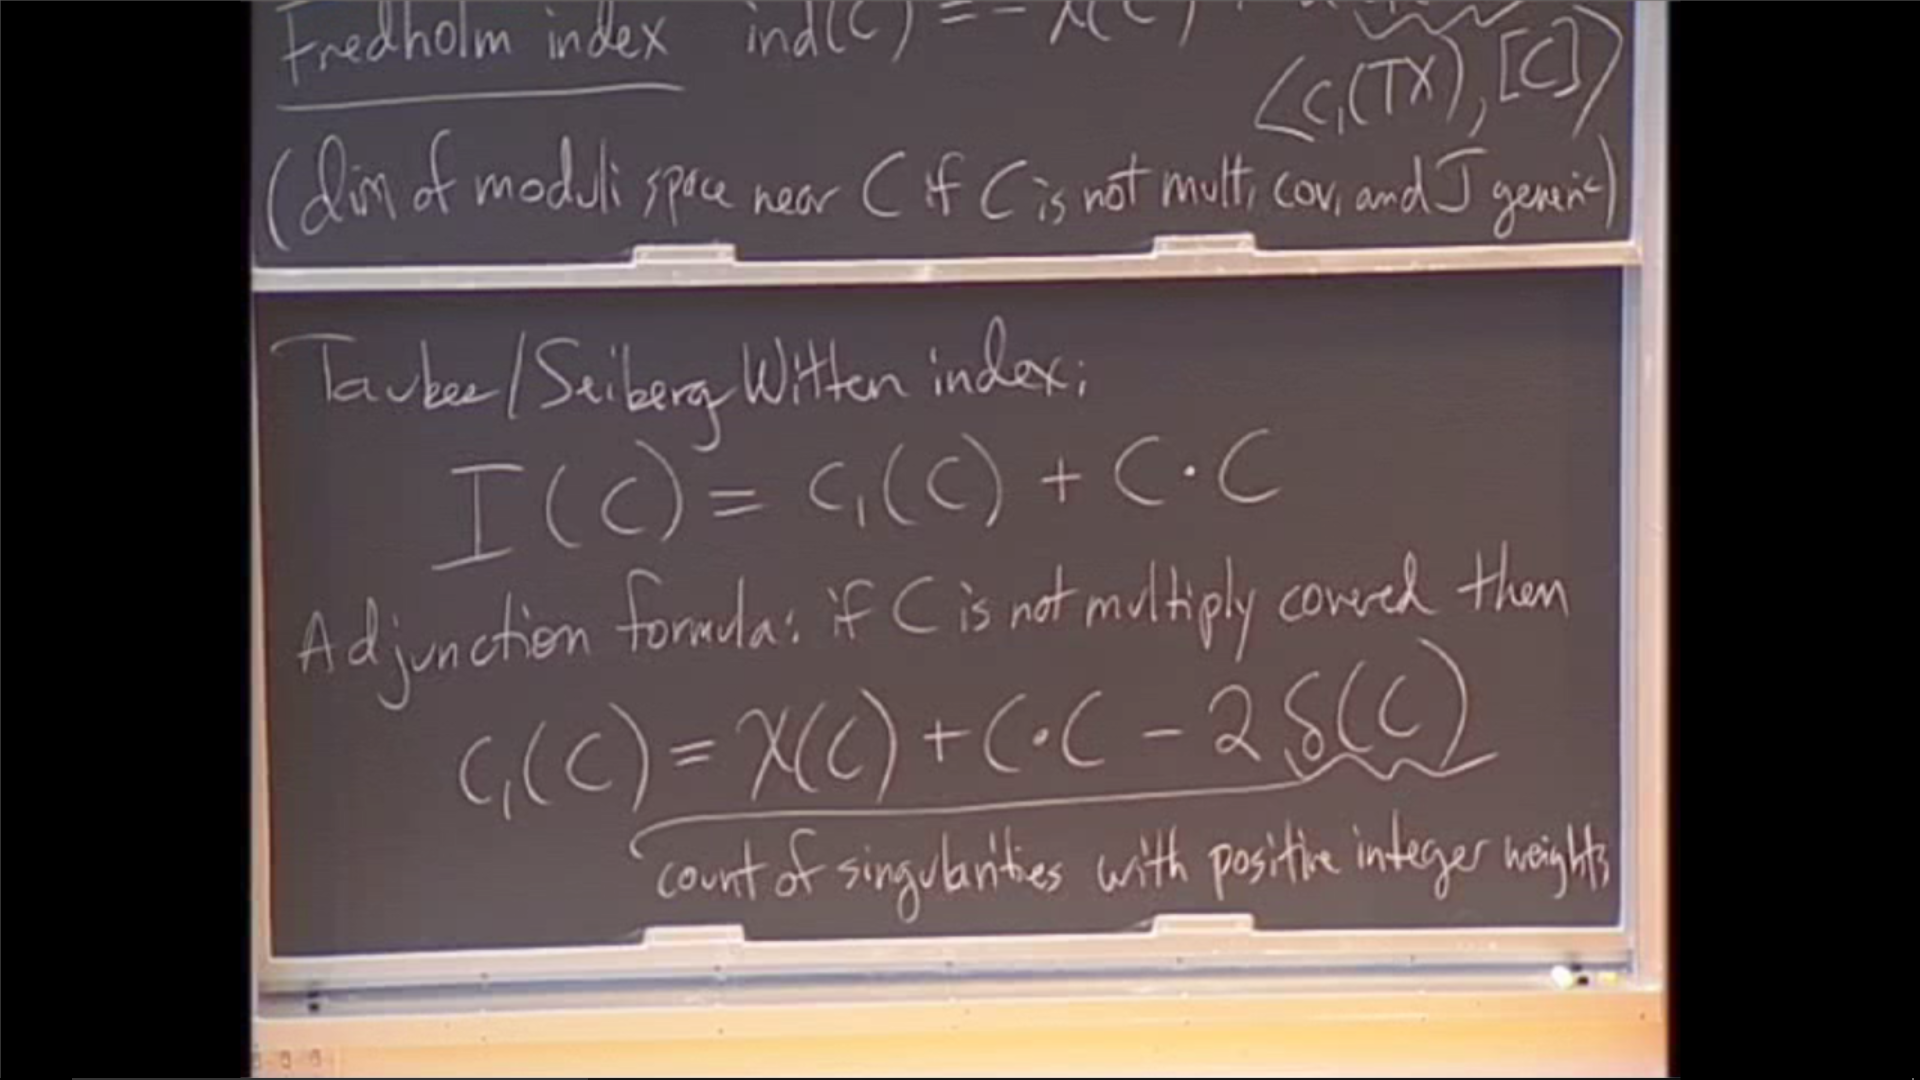 Fredholm index ind(C) = - χ(C) +
⟨c₁(TX), [C]⟩
(dim of moduli space near C if C is not mult. cov. and J generic)
Taubes/Seiberg Witten index:
I(C) = c₁(C) + C·C
Adjunction formula: if C is not multiply covered then
c₁(C) = χ(C) + C·C - 2δ(C)
count of singularities with positive integer weights